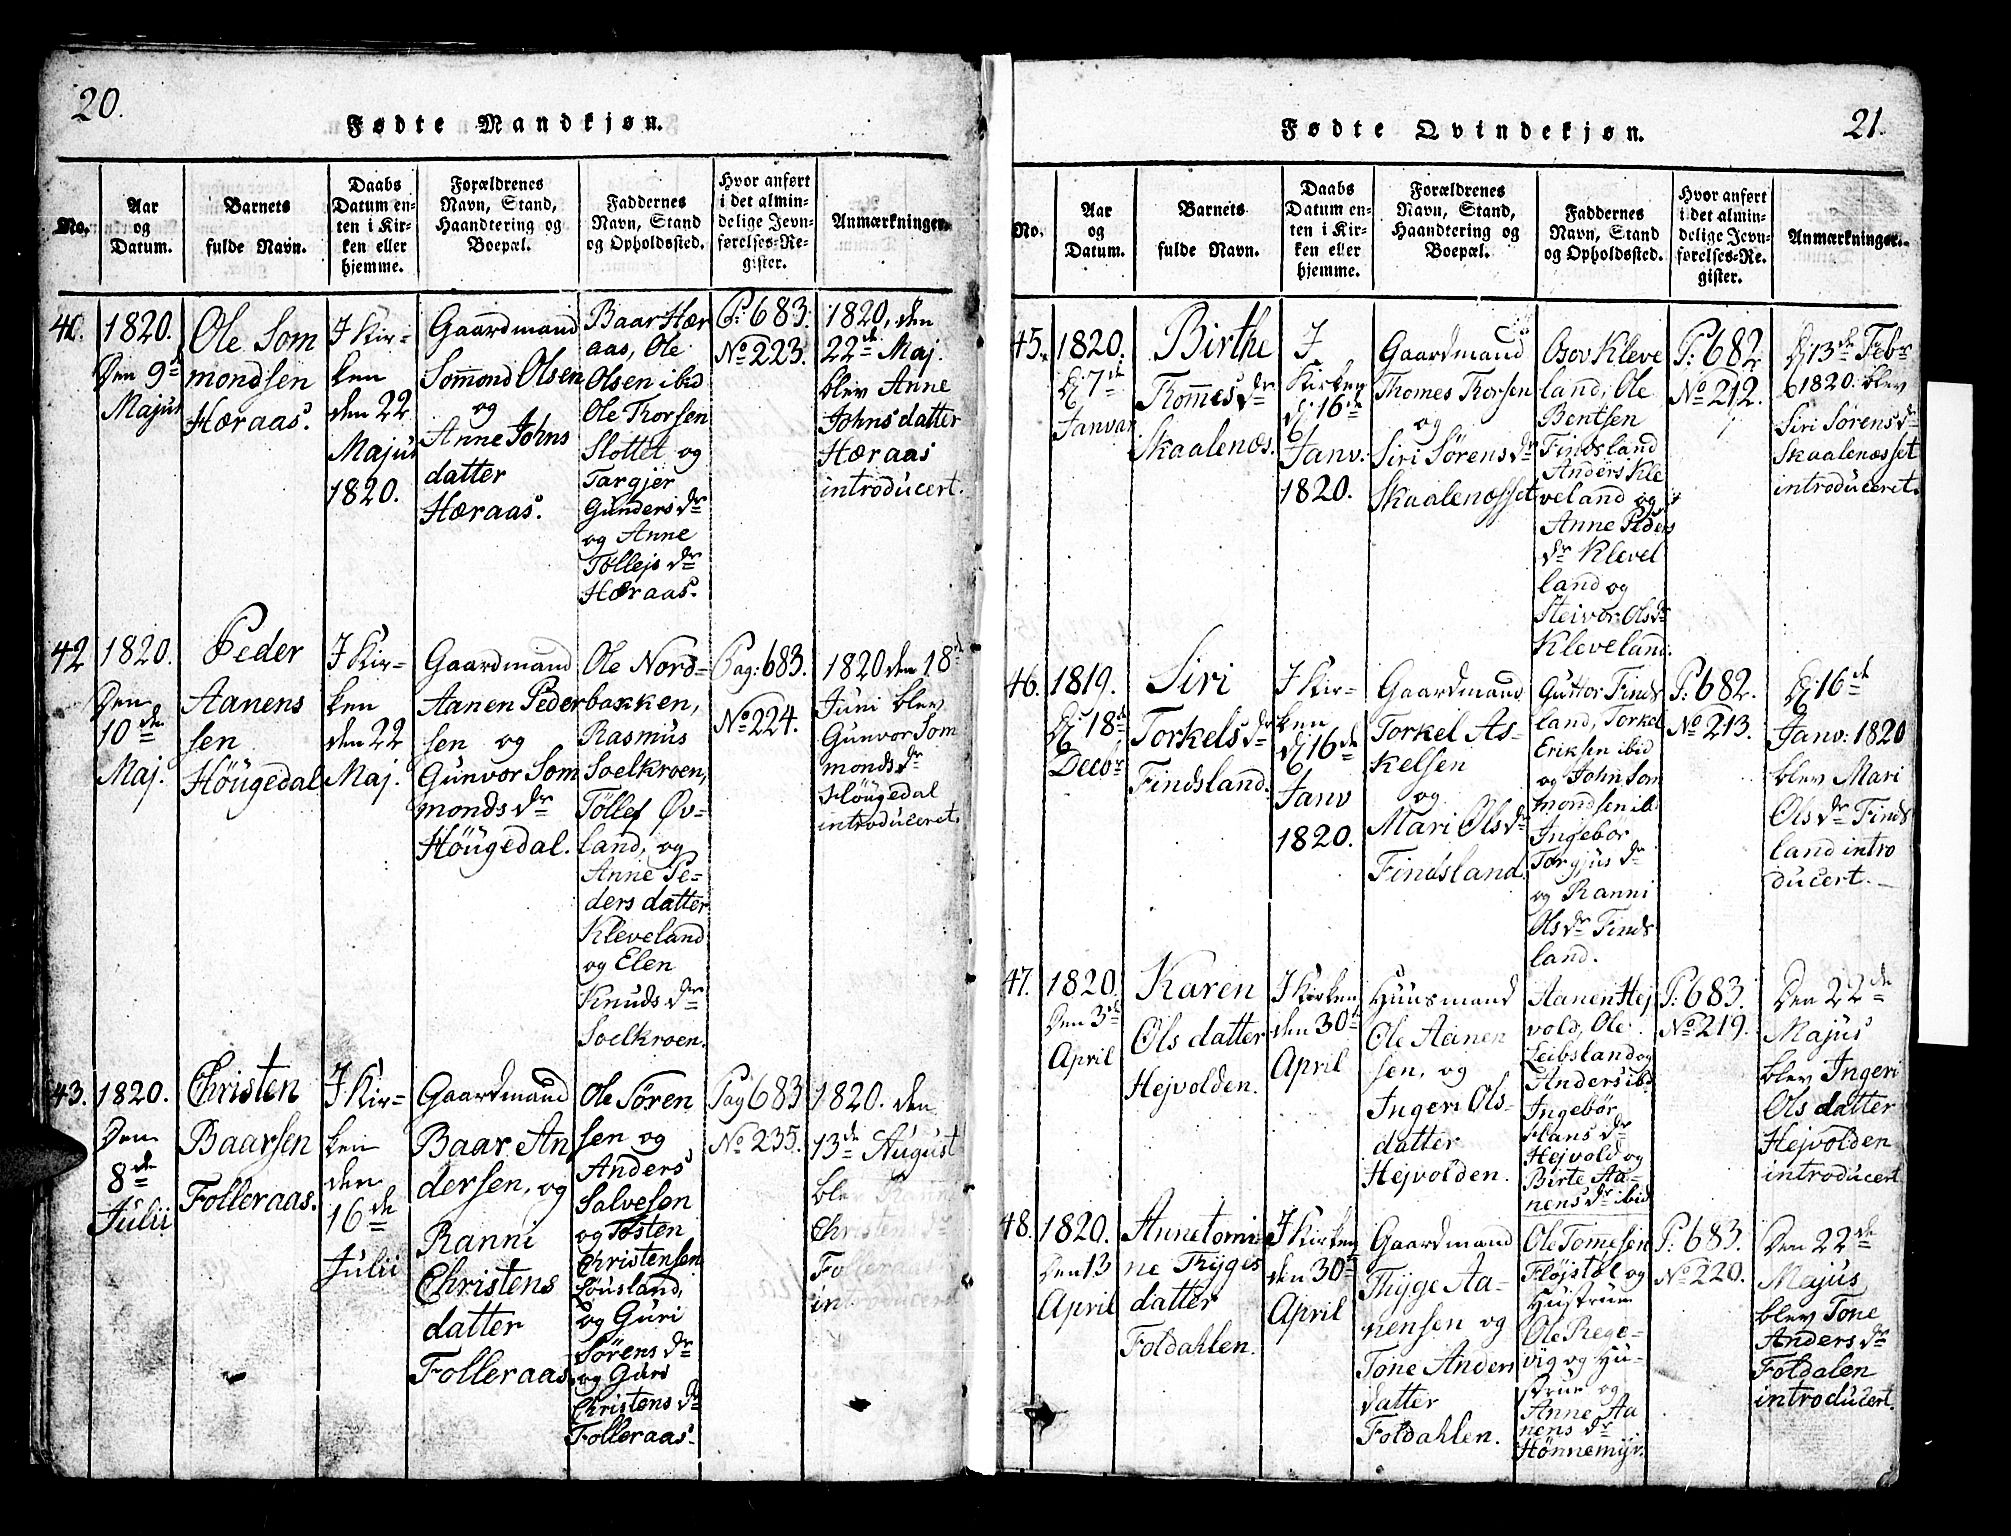 20.
Fødte Mandkjøn.
No.
Aar
og
Datum.
Barnets
fulde Navn.
Daabs
Datum en-
ten i Kir-
ken eller
hjemme.
Forældrenes
Navn, Stand,
Haandtering og
Boepæl.
Faddernes
Navn, Stand
og Opholdssted.
Hvor anført
i det almin-
delige Jevn-
førelses-Re-
gister.
Anmærkninger.
40.
1820.
Den 9d
Majus
Ole Som
mondsen
Hæraas.
I Kir-
ken
den 22
Majus
1820.
Gaardmand
Sommond Olsen
og
Anne Johns
datter
Hæraas.
Baar Hær
aas, Ole
Olsen ibid
Ole Thorsen
Slottet og
Targjer
Gunders dr
og Anne
Tollejs dr
Hæraas.
P: 683.
No 223.
1820, den
22de Maj.
blev Anne
Johns datter
Hæraas
introducert.
42
1820.
Den
10de
Maj.
Peder
Aanens
sen
Höugedal
I Kir-
ken
den 22
Maj.
Gaardmand
Aanen Peder
sen og
Gunvor Som
monds dr
Höugedal.
Ole Nord-
bakken,
Rasmus
Soelkroen,
Töllef Øv-
land, og
Anne Pe-
ders datter
Kleveland
og Elen
Knuds dr
Soelkroen.
Pag: 683.
No 224.
1820 den 18de
Juni blev
Gunvor Som
monds dr
Höugedal
introduceret.
43.
1820.
Den
8de
Julii
Christen
Baarsen
Folleraas.
I Kir-
ken
den
16de
Julii
Gaardmand
Baar An
dersen, og
Ranni
Christens
datter
Folleraas
Ole Sören
sen og
Anders
Salvesen
og Tosten
Christensen
Lönsland,
og Guri
Sørens dr
og Guri
Christens dr
Folleraas.
Pag 683
No 235.
1820. den
13de August
blev
Christens dr
Folleraas
introducert
21.
Fødte Qvindekjøn.
No.
Aar
og
Datum.
Barnets
fulde Navn.
Daabs
Datum en-
ten i Kir-
ken eller
hjemme.
Forældrenes
Navn, Stand,
Haandtering og
Boepæl.
Faddernes
Navn, Stand
og Opholdssted.
Hvor anført
i det almin-
delige Jevn-
førelses-Re-
gister.
Anmærkninger.
45.
1820.
Dj 7de
Januar
Birthe
Thommes dr
Skaalenæs.
I
Kirken
Dj 16de
Janv.
1820.
Gaardmand
Thomes Thorsen
og
Siri Sörens dr
Skaalenæsset
Osov Kleve
land, Ole
Bentsen
Findsland
Anders Kle
veland og
Anne Peders
dr Klevel
land og
Steivor Ols dr
Kleveland.
P: 682
No 212.
Dj 13de Febr
1820: blev
Siri Sørens dr
Skaalenæsset
introduceret.
46.
1819.
Dj 18de
Decbr
Siri
Torkels dr
Findsland.
I Kir-
ken
Dj 16de
Janv
1820.
Gaardmand
Torkel As-
kelsen
og
Mari Ols dr
Findsland.
Guttor Finds
land, Torkel
Eriksen ibid
og John Som
mondsen ibd
Ingebör
Torgjus dr
og Ranni
Ols dr Finds
land.
P: 682.
No 213.
Dj 16de
Janv: 1820
blev Mari
Ols dr Finds
land intro
ducert.
47.
1820.
Den 3de
April
Karen
Ols datter
Hejvolden.
I Kirken
den 30te
April
Huusmand
Ole Aanen
sen, og
Ingeri Ols-
datter
Hejvolden.
Aanen Hej
vold, Ole
Leibsland og
Anders ibd
Ingebör
Hans dr
Hejvold og
Birte Aa-
nens dr ibid
P: 683.
No 219.
Den 22de
Majus
blev Ingeri
Ols datter
Hejvolden
introducert
48.
1820.
Den 13
April
Annetomi-
ne Thyges
datter
Foldahlen.
I Kirken
den 30te
April
Gaardmand
Thyge Aa-
nensen og
Tone Anders
datter
Foldahlen.
Ole Tomesen
Fløjstøl og
Hustrue
Ole Rege-
vig og Hu-
strue og
Anne Aa
nens dr
Hönnemyr.
P: 683.
No 220.
Den 22de
Majus
blev Tone
Anders dr
Foldalen
introducert.